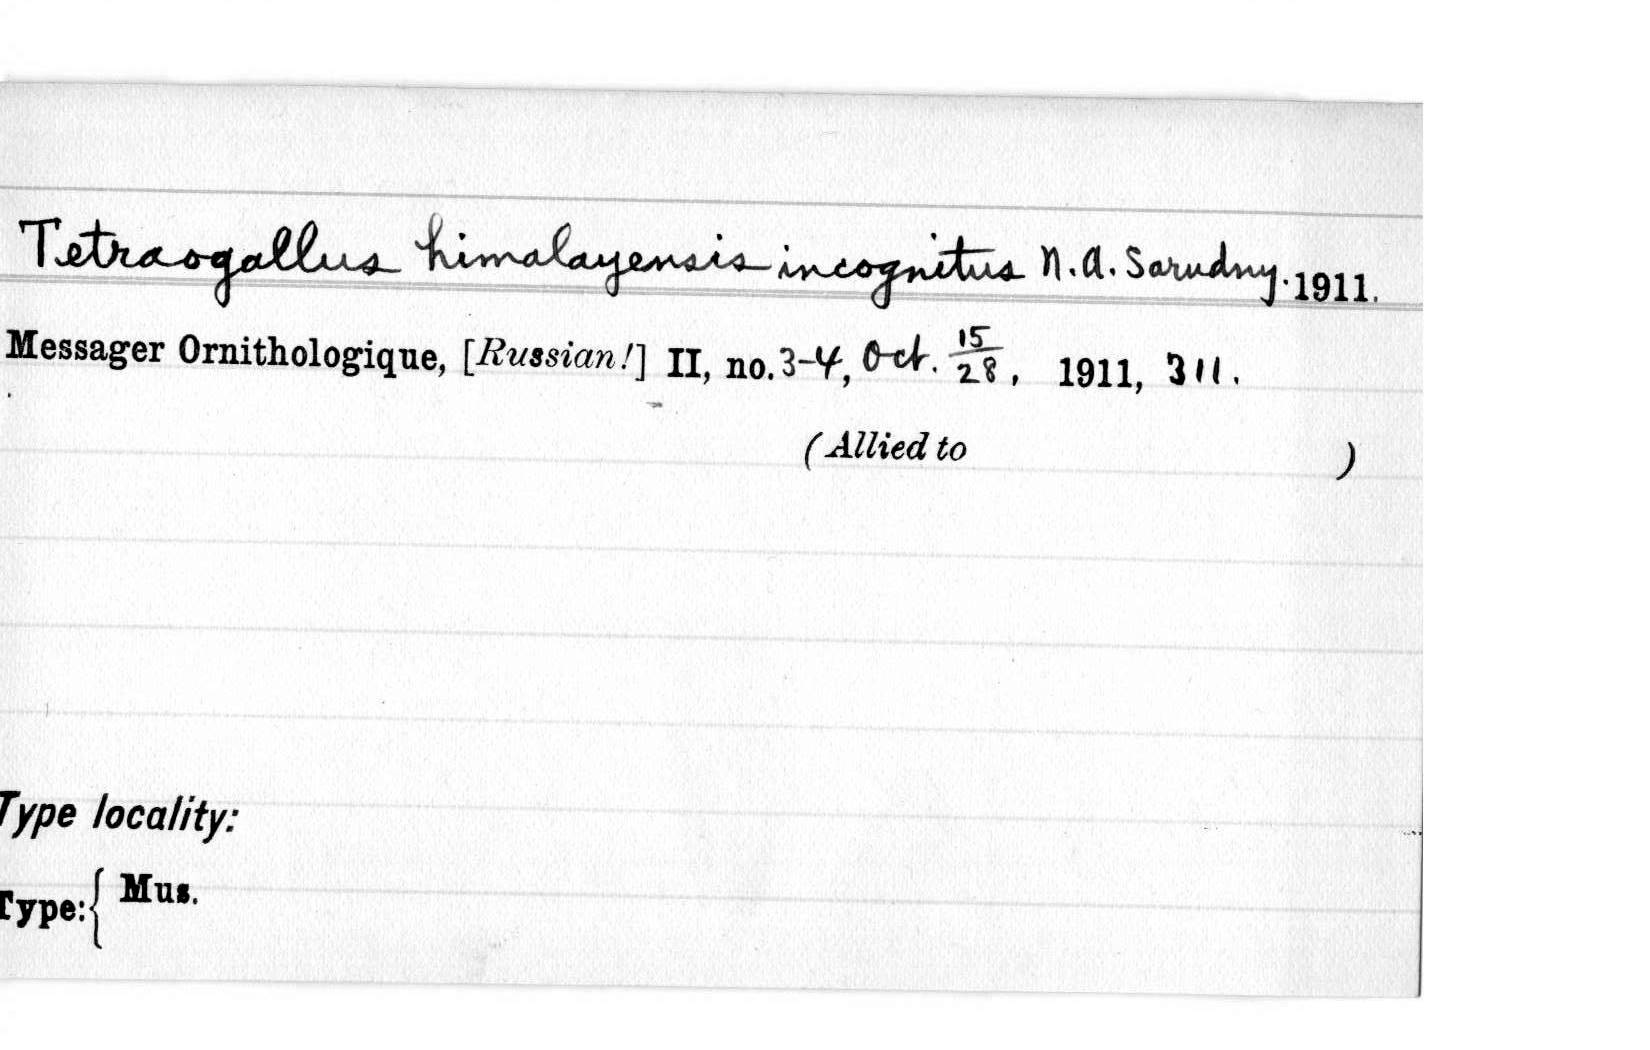 Tetraogallus himalayensis incognitus N.A. Sarudny. 1911.
Messager Ornithologique, [Russian!] II, no. 3-4, Oct. 15/28, 1911, 311.
(Allied to )
Type locality:
Type: { Mus.